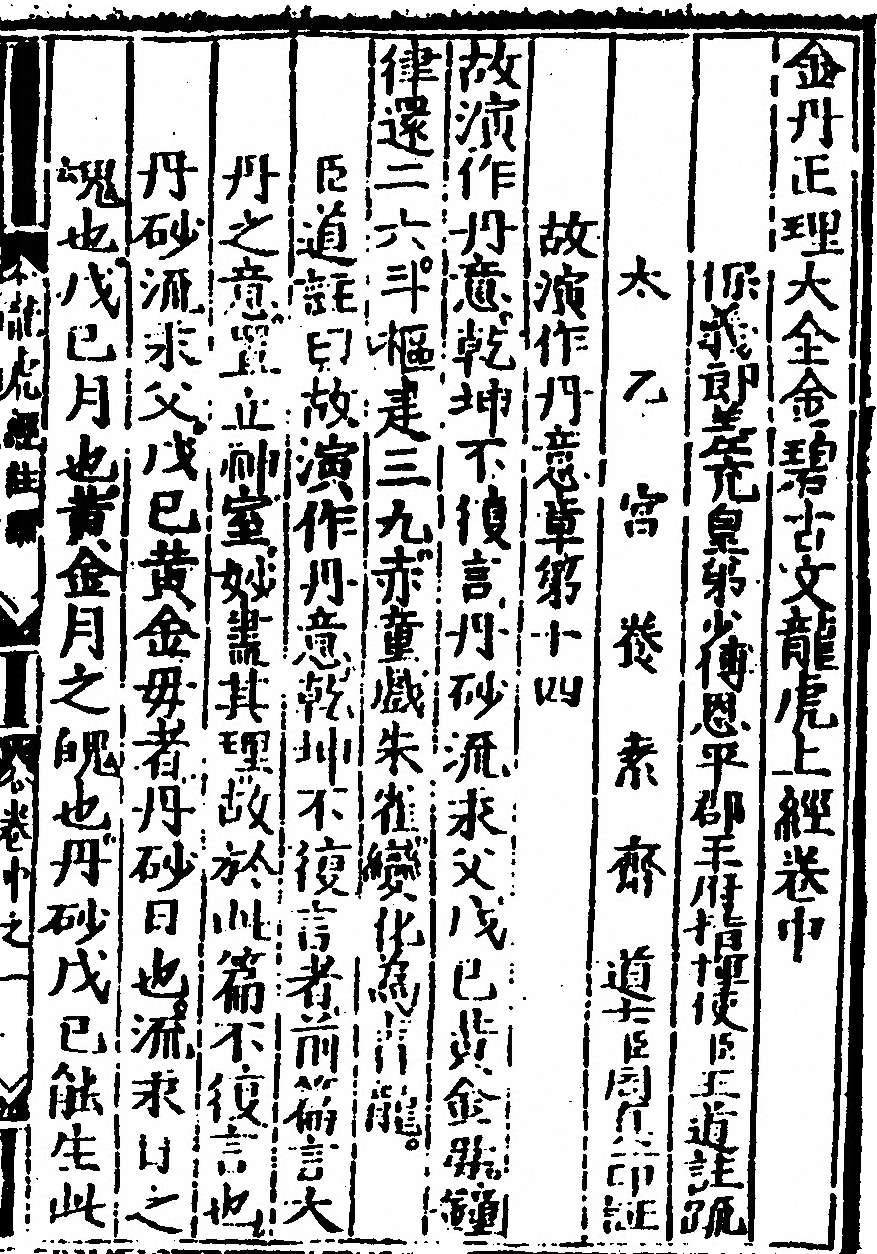 金丹正理大全金碧古文龍虎上經卷中
保義郎差充皇弟少傅恩平郡王府指揮使臣王道註疏
太乙宮養素齋道士臣周真一印証
故演作丹意章第十四
故演作丹意乾坤不復言丹砂流汞父戊巳黃金母鐘
律還二六斗樞建三九赤童戲朱雀變化為青龍
臣道註曰故演作丹意乾坤不復言者前篇言大
丹之意置立神室妙盡其理故於此篇不復言也
丹砂流汞父戊巳黃金毋者丹砂日也流汞日之
魂也戊巳月也黃金月之魄也丹砂戊巳能生此
龍虎經註疏 卷中之一